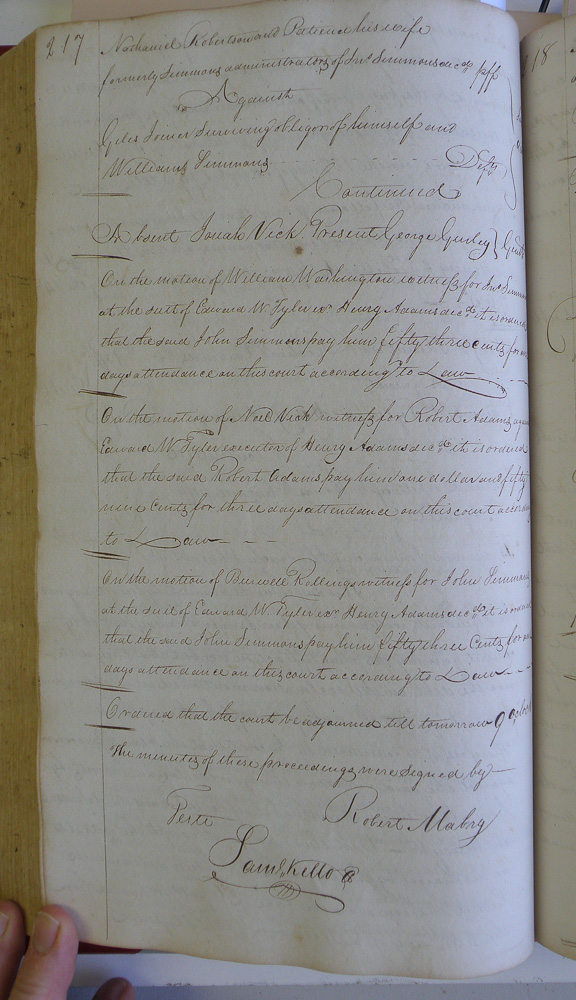 217
Nathaniel Robertson and Patience his wife
formerly Simmons administrators of Jnº Simmons decd plff
Against
Giles Joiner surviving obligor of himself and
Williams Simmons Defts
Continued
Absent Josiah Vick. Present George Gurley } Gent
On the motion of William Washington witness for Jnº Simmons
at the suit of Edward W Tyler exr Henry Adams decd it is ordered
that the said John Simmons pay him fifty three cents for one
days attendance on this court according to Law
On the motion of Noel Vick witness for Robert Adams
Edward W. Tyler executor of Henry Adams decd it is ordered
that the said Robert Adams pay him one dollar and fifty
nine Cents for three days attendance on this court accor
to Law
On the motion of Burwell Rollings witness for John Simmons
at the suit of Edward W Tyler exr Henry Adams decd it is
that the said John Simmons pay him fifty three Cents for
days attendance on this court according to Law
Ordered that the court be adjourned till tomorrow 9
The minutes of these proceedings were signed by
Teste Robert Mabry
Saml Kello
218